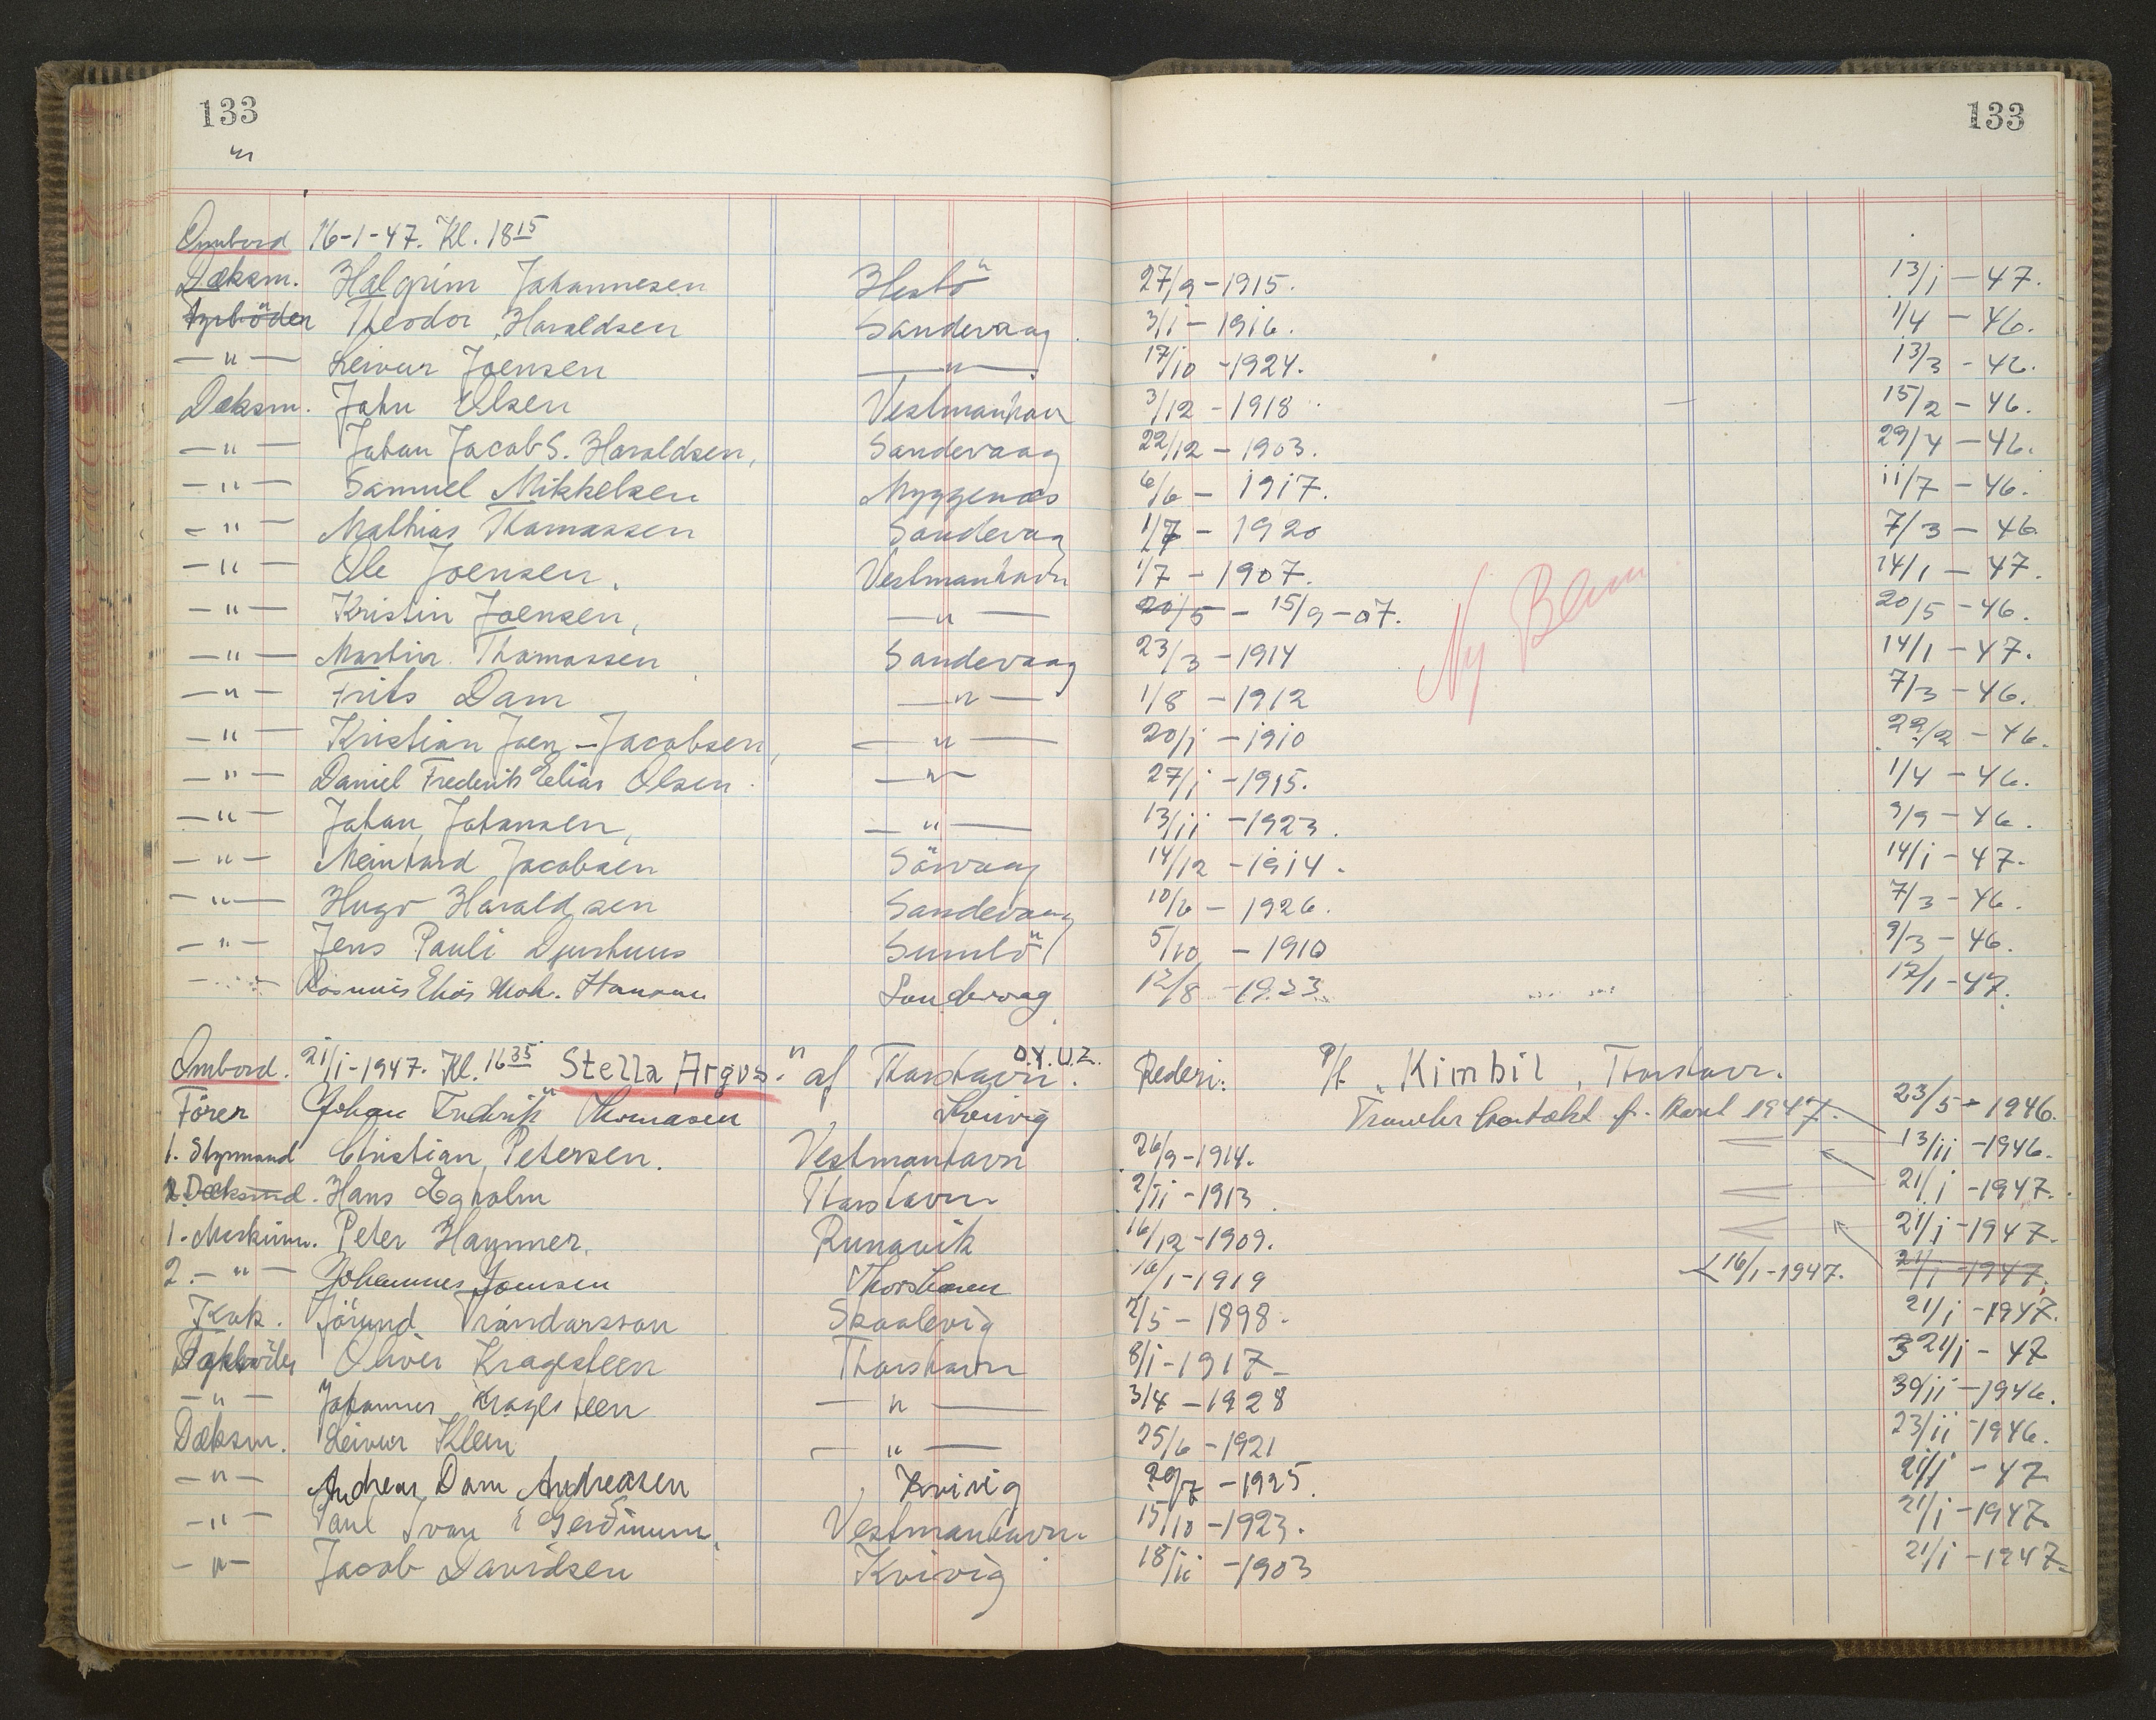 133 133
Ombord 16-1-47. Kl. 18 15
Dæksm. Halgrim Johannesen Hestö 27/9-1915. 13/1-47.
Fyrböder Theodor Haraldsen Sandevaag 3/1-1916. 1/4-46.
-"- Leivur Joensen -"- 17/10-1924. 13/3-46.
Dæksm. John Olsen Vestmanhavn 3/12-1918 15/2-46.
-"- Johan Jacob S. Haraldsen, Sandevaag 22/12-1903. 29/4-46.
-"- Samuel Mikkelsen Myggenæs 6/6-1917. 11/7-46.
-"- Mathias Thomassen Sandevag 1/7-1920 7/3-46.
-"- Ole Joensen, Vestmanhavn 1/7-1907. 14/1-47.
-"- Kristin Joensen, -"- 20/5-15/9-07. 20/5-46.
-"- Martin Thomassen Sandevaag 23/3-1914 14/1-47.
Ny
-"- Frits Dam -"- 1/8-1912 7/3-46.
-"- Kristian Joen-Jacobsen, -"- 20/1-1910 22/2-46.
-"- Daniel Frederik Elias Olsen -"- 27/1-1915. 1/4-46.
-"- Johan Johansen, -"- 13/11-1923. 9/9-46.
-"- Meinhard Jacobsen Sörvaag 14/12-1914. 14/1-47.
-"- Hugo Haraldsen Sandevaag 10/6-1926. 7/3-46.
-"- Jens Pauli Djurhuus Sumbö 5/10-1910 9/3-46.
-"- Rasmus Elias Hansen Sandevaag 12/8-1923 17/1-47.
Ombord. 21/1-1947. Kl. 16 35 "Stella Argus." af Thorshavn. O.Y.U.Z. Rederi: P/f. Kimbil, Thorshavn.
Förer Johan Fredrik Thomasen Kvivig Trawler 1947. 23/5-1946.
1. Styrmand Christian Petersen. Vestmanhavn 26/9-1914. 13/11-1946.
2. Dæksmd. Hans Egholm Thorshavn 2/11-1913 21/1-1947.
1. Maskinm. Peter Hammer, Runavik 16/12-1909. 21/1-1947.
2.-"- Johannes Joensen Thorshavn 16/1-1919 <16/1-1947. 21/1-1947.
Kok. Jörund Trándarsson Skaalevig 2/5-1898. 21/1-1947.
Oliver Kragesteen Thorshavn 8/1-1917 21/1-47
-"- Johannes Kragesteen -"- 3/4-1928 30/11-1946.
Dæksm. Leivur Klein -"- 25/6-1921 23/11-1946.
-"- Andreas Dam Andreasen Kvivig 29/7-1925. 21/1-47
-"- Paul Ivan í Gerðinum, Vestmanhavn. 15/10-1923. 21/1-1947.
-"- Jacob Davidsen Kvivig 18/11-1903 21/1-1947.